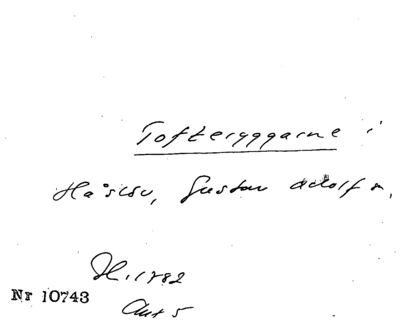 Tofteryggarne i
Gustav Adolf s.
H. 1782
Nr 10743
Ant 5